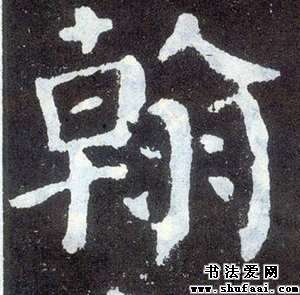 翰
书法爱网
www.shufaai.com